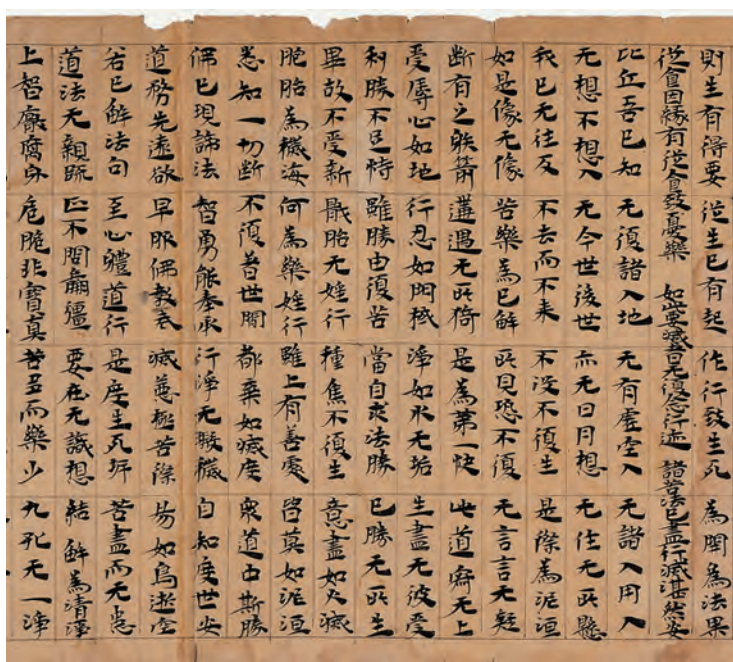 則生有得要 從生已有起 作行致生死 為開為法果
從食因緣有從食致憂樂 如要滅者无復念行迹 諸苦法已盡行滅湛然安
比丘吾已知 无復諸入地 无有虛空入 无諸入用入
无想不想入 无今世後世 亦无日月想 无住无所懸
我已无往反 不去而不来 不没不復生 是際為泥洹
如是像无像 苦樂為已解 所見恐不復 无言言无疑
断有之躲箭 遘遇无所猗 是為第一快 此道寂无上
受辱心如地 行忍如門棫 淨如水无垢 生盡无彼受
利勝不足恃 雖勝由復苦 當自求法勝 已勝无所生
畢故不受新 厭胎无婬行 種焦不復生 意盡如火滅
胞胎為穢海 何為樂婬行 雖上有善處 皆莫如泥洹
悉知一切断 不復著世間 都棄如滅度 衆道中斯勝
佛已現諦法 智勇能奉承 行淨无瑕穢 自知度世安
道務先遠欲 早服佛教戒 滅惡極苦際 易如鳥逝空
若已解法句 至心體道行 是度生死岸 苦盡而无患
道法无親疏 正不問羸彊 要在无識想 結解為清淨
上智饜腐身 危脆非寶真 苦多而樂少 九孔无一淨